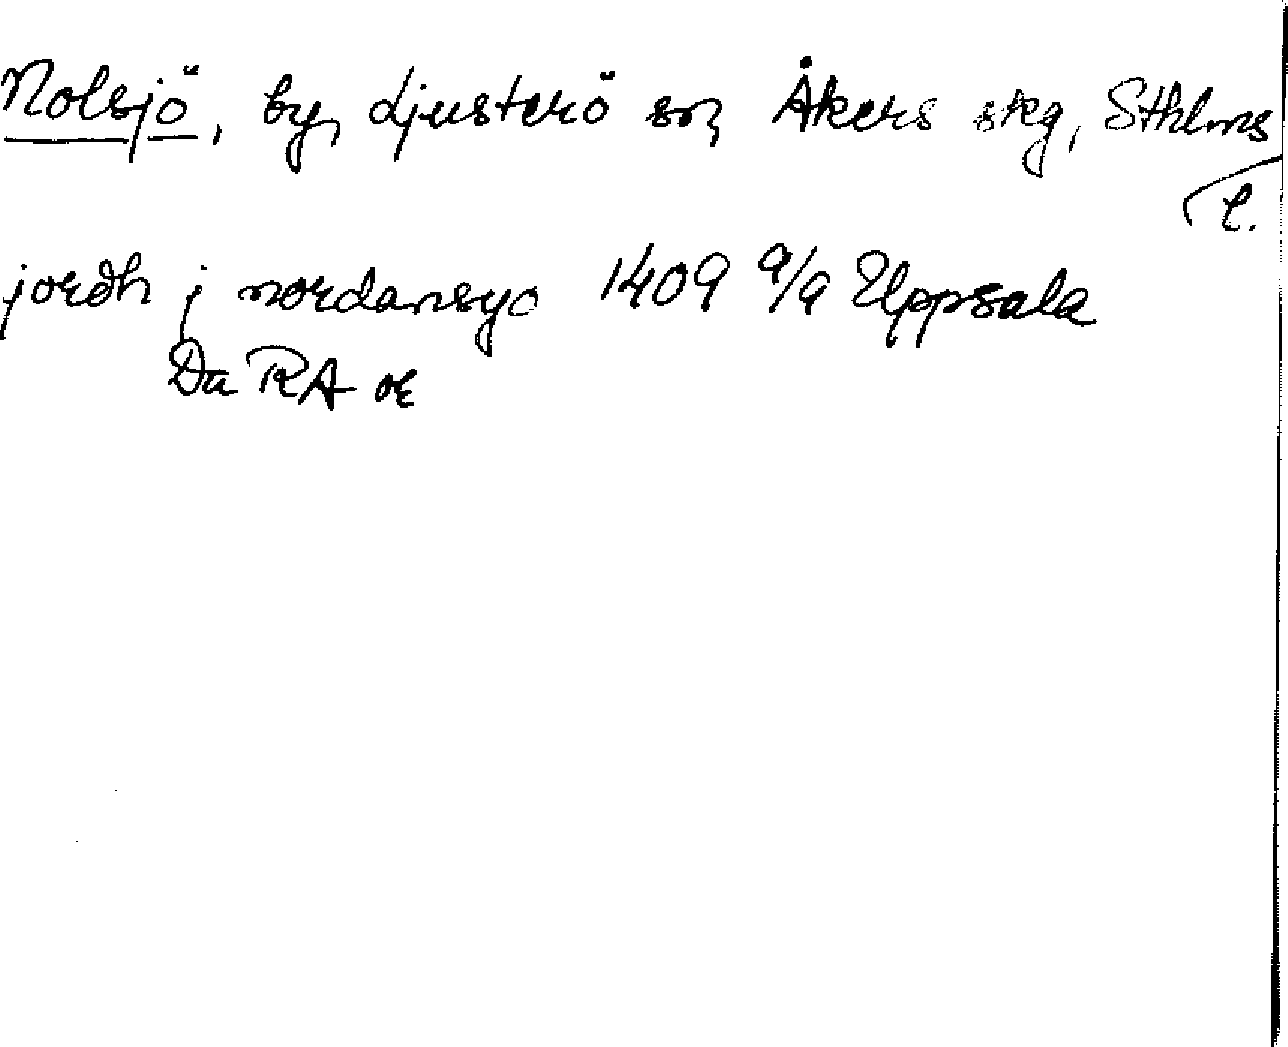 Nolsjö, by, Ljusterö sn, Åkers skg, Sthlms
l.
jordh j nordansyo 1409 9/9 Uppsala
Da RA or